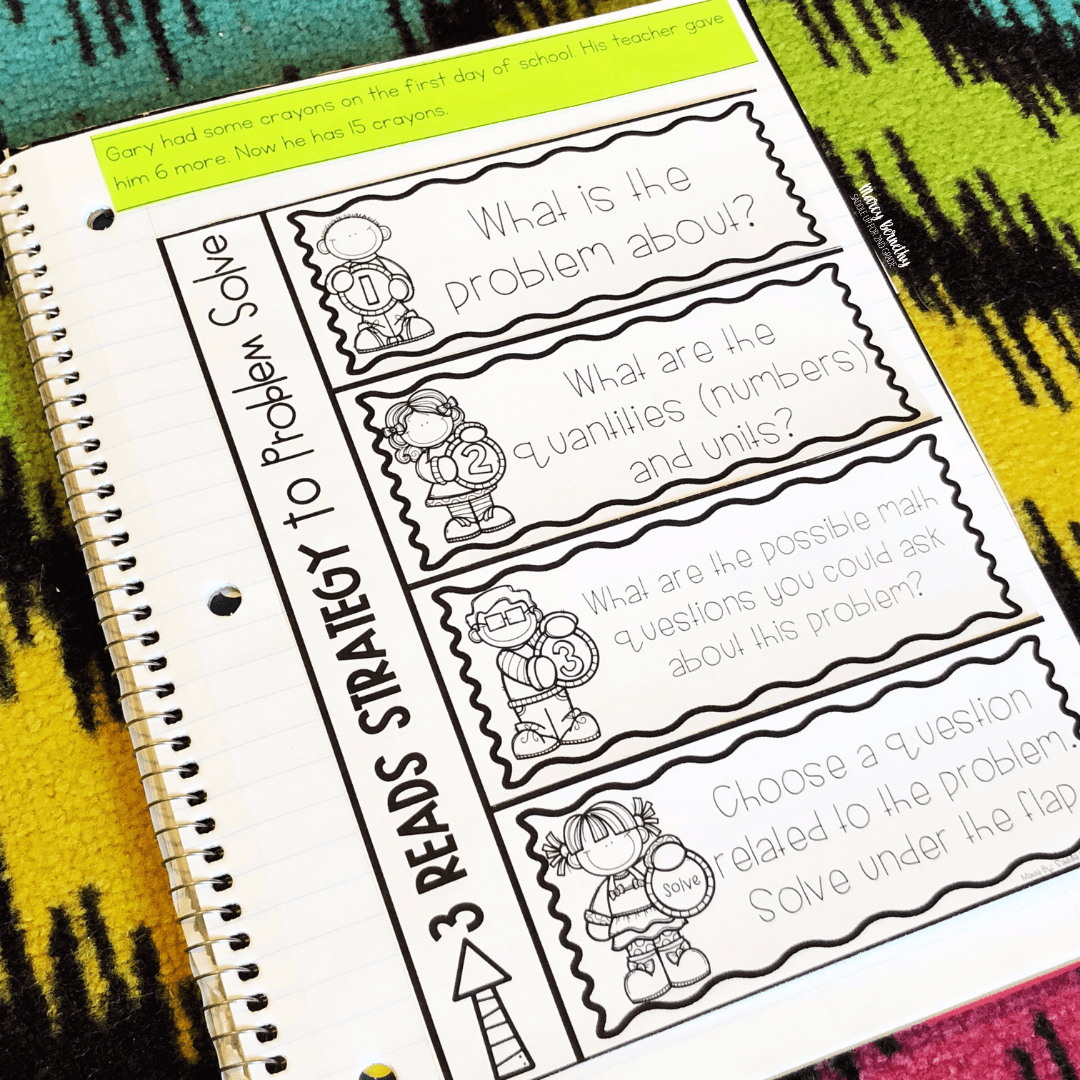 Gary had some crayons on the first day of school. His teacher gave
him 6 more. Now he has 15 crayons.
3 READS STRATEGY to Problem Solve
1
What is the
problem about?
2
What are the
quantities (numbers)
and units?
3
What are the possible math
questions you could ask
about this problem?
solve
Choose a question
related to the problem.
Solve under the flap
Made by:
Marcy Bernethy
SADDLE UP FOR 2ND GRADE